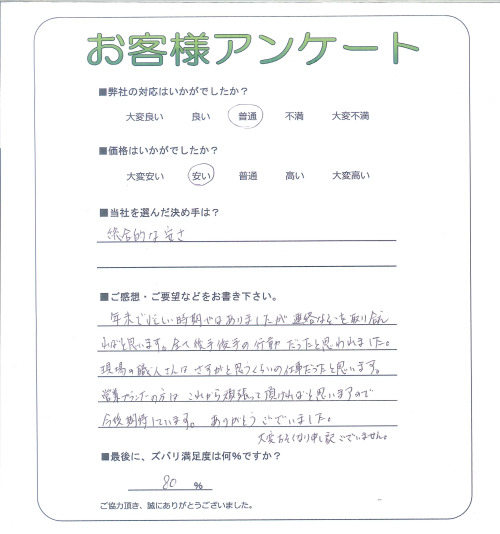 お客様アンケート
■弊社の対応はいかがでしたか？
大変良い 良い 普通 不満 大変不満
■価格はいかがでしたか？
大変安い 安い 普通 高い 大変高い
■当社を選んだ決め手は？
総合的な安さ
■ご感想・ご要望などをお書き下さい。
年末で忙しい時期ではありましたが連絡などを取り合え
ればと思います。全て後手後手の行動だったと思われました。
現場の職人さんはさすがと思うくらいの仕事だったと思います。
営業プランナーの方はこれから頑張って頂ければと思いますので
今後期待しています。ありがとうございました。
大変おそくなり申し訳ございません。
■最後に、ズバリ満足度は何％ですか？
80 ％
ご協力頂き、誠にありがとうございました。